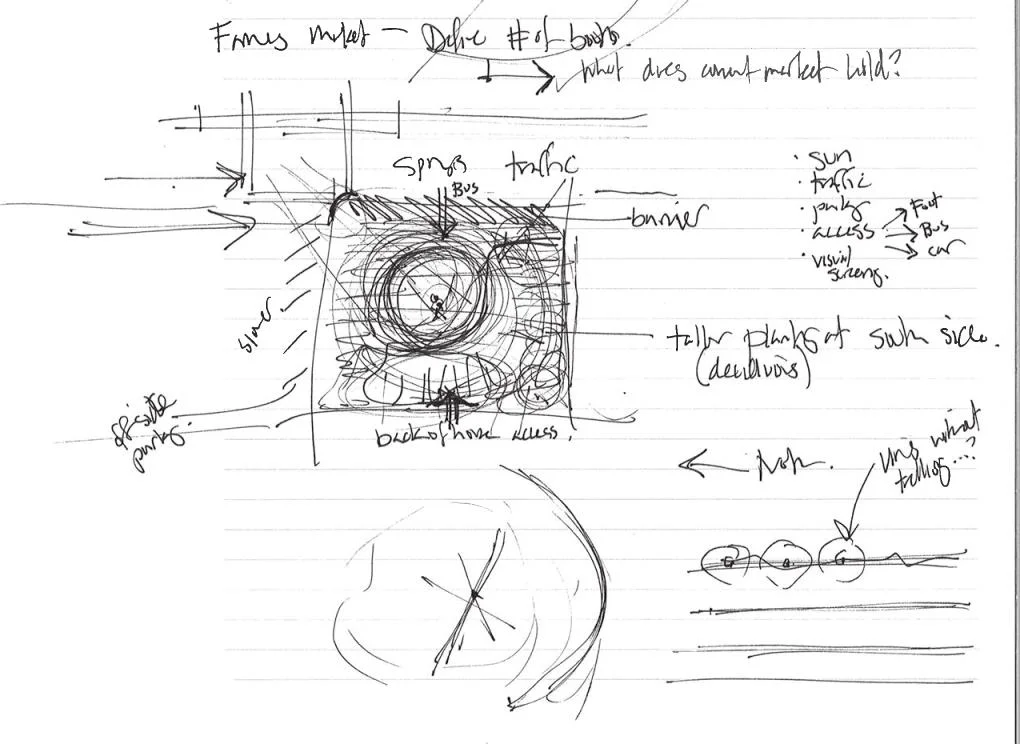 Farmers Market — Define # of booths.
What does current market hold?
traffic
Bus
barrier
· sun
· traffic
· parking
· access
Foot
Bus
car
· visual
screening.
taller planting at south side.
(deciduous)
off site
parking.
back of house access.
North.